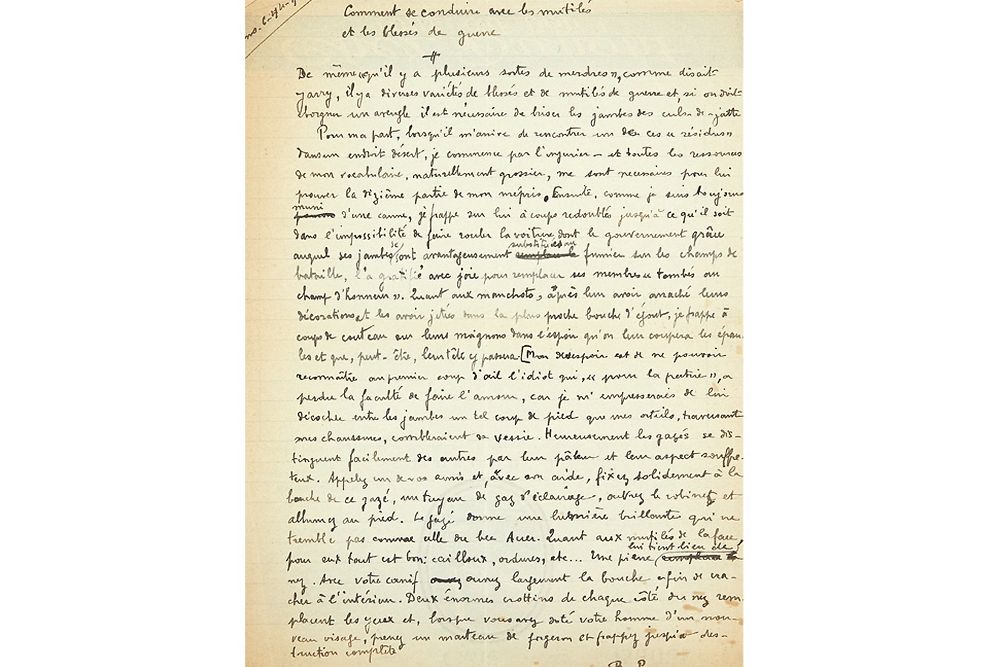 Comment se conduire avec les mutilés
et les blessés de guerre
De même « qu'il y a plusieurs sortes de merdres », comme disait
Jarry, il y a diverses variétés de blessés et de mutilés de guerre et, si on doit
éborgner un aveugle il est nécessaire de briser les jambes des culs-de-jatte
Pour ma part, lorsqu'il m'arrive de rencontrer un de ces « résidus »
dans un endroit désert, je commence par l'injurier – et toutes les ressources
de mon vocabulaire, naturellement grossier, me sont nécessaires pour lui
prouver la dizième partie de mon mépris. Ensuite, comme je suis toujours
muni
d'une canne, je frappe sur lui à coups redoublés jusqu'à ce qu'il soit
dans l'impossibilité de faire rouler la voiture dont le gouvernement grâce
substitué au
auquel ses jambes se sont avantageusement fumier sur les champs de
bataille, l'a gratifié avec joie pour remplacer ses membres « tombés au
champ d'honneur ». Quant aux manchots, après leur avoir arraché leurs
décorations et les avoir jetées dans la plus proche bouche d'égout, je frappe à
coups de couteau sur leurs moignons dans l'espoir qu'on leur coupera les épau-
les et que, peut-être, leur tête y passera. [Mon désespoir est de ne pouvoir
reconnaître au premier coup d'œil l'idiot qui, « pour la patrie », a
perdu la faculté de faire l'amour, car je m'empresserais de lui
décocher entre les jambes un tel coup de pied que mes orteils, traversant
mes chaussures, cribleraient sa vessie. Heureusement les gazés se dis-
tinguent facilement des autres par leur pâleur et leur aspect souffre-
teux. Appelez un de vos amis et, avec son aide, fixez solidement à la
bouche de ce gazé, un tuyau de gaz d'éclairage, ouvrez le robinet et
allumez au pied. Le gazé donne une lumière brillante qui ne
tremble pas comme celle du bec Auer. Quant aux mutilés de la face,
lui tient bien de
pour eux tout est bon: cailloux, ordures, etc... Une pierre
nez. Avec votre canif ouvrez largement la bouche afin de cra-
cher à l'intérieur. Deux énormes crottins de chaque côté du nez rem-
placent les yeux et, lorsque vous avez doté votre homme d'un nou-
veau visage, prenez un marteau de forgeron et frappez jusqu'à des-
truction complète
B. P.